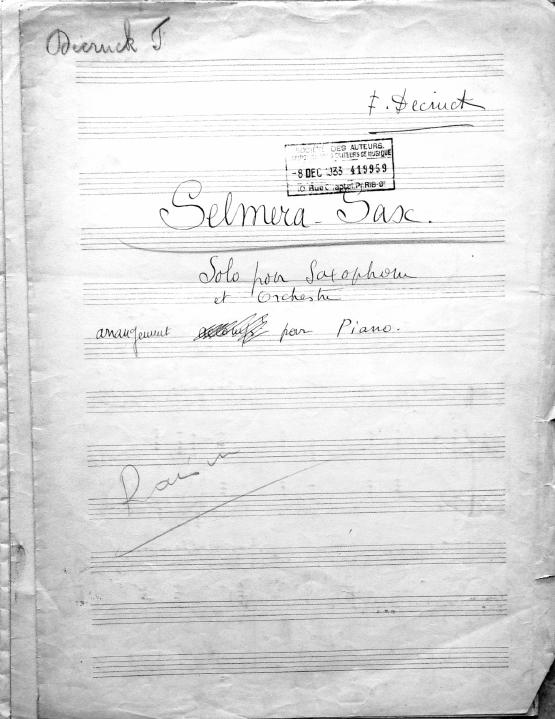 Decruck F.
F. Decruck
SOCIÉTÉ DES AUTEURS,
COMPOSITEURS & ÉDITEURS DE MUSIQUE
-8 DEC 1933 419959
10, Rue Chaptal, PARIS-9e
Selmera-Sax.
Solo pour Saxophone
et Orchestre
arrangement pour Piano.